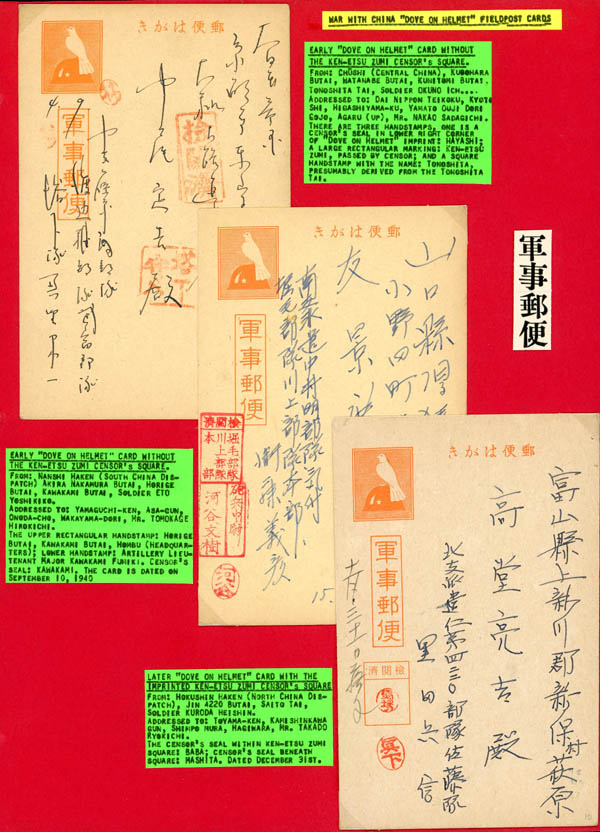 WAR WITH CHINA "DOVE ON HELMET" FIELDPOST CARDS
EARLY "DOVE ON HELMET" CARD WITHOUT
THE KEN-ETSU ZUMI CENSOR'S SQUARE.
FROM: CHUSHI (CENTRAL CHINA), KUBOHARA
BUTAI, WATANABE BUTAI, KUNITOMI BUTAI.
TONOSHITA TAI, SOLDIER OKUNO ICH....
ADDRESSED TO: DAI NIPPON TEIKOKU, KYOTO
SHI, HIGASHIYAMA-KU, YAMATO OUJI DORI
GOJO, AGARU (UP), MR. NAKAO SADAGICHI.
THERE ARE THREE HANDSTAMPS, ONE IS A
CENSOR'S SEAL IN LOWER RIGHT CORNER
OF "DOVE ON HELMET" IMPRINT: HAYASHI;
A LARGE RECTANGULAR MARKING: KEN-ETSU
ZUMI, PASSED BY CENSOR; AND A SQUARE
HANDSTAMP WITH THE NAME: TONOSHITA,
PRESUMABLY DERIVED FROM THE TONOSHITA
TAI.
郵便はがき
軍事郵便
検閲済
中尾定吉殿
軍事郵便
郵便はがき
山口縣厚狭
小野田町
友景
南支派遣中村明部隊気付
堀毛部隊川上部隊本部
衛藤義彦
軍事郵便
検閲済
堀毛部隊
川上部隊
本部
河谷文樹
15.
EARLY "DOVE ON HELMET" CARD WITHOUT
THE KEN-ETSU ZUMI CENSOR'S SQUARE.
FROM: NANSHI HAKEN (SOUTH CHINA DIS-
PATCH) AKIRA NAKAMURA BUTAI, HORIGE
BUTAI, KAWAKAMI BUTAI, SOLDIER ETO
YOSHIHIKO.
ADDRESSED TO: YAMAGUCHI-KEN, ASA-GUN,
ONODA-CHO, WAKAYAMA-DORI, MR. TOMOKAGE
HIROKICHI.
THE UPPER RECTANGULAR HANDSTAMP: HORIGE
BUTAI, KAWAKAMI BUTAI, HOMBU (HEADQUAR-
TERS); LOWER HANDSTAMP: ARTILLERY LIEU-
TENANT MAJOR KAWAKAMI FUHIKI. CENSOR'S
SEAL: KAWAKAMI. THE CARD IS DATED ON
SEPTEMBER 10, 1940
郵便はがき
富山縣上新川郡新保村萩原
高堂亮吉殿
北支派遣仁第四二二〇部隊佐藤隊
黒田兵信
軍事郵便
検閲済
馬場
真下
LATER "DOVE ON HELMET" CARD WITH THE
IMPRINTED KEN-ETSU ZUMI CENSOR'S SQUARE
FROM: HOKUSHIN HAKEN (NORTH CHINA DIS-
PATCH), JIN 4220 BUTAI, SAITO TAI,
SOLDIER KURODA HEISHIN.
ADDRESSED TO: TOYAMA-KEN, KAMISHINKAWA
GUN, SHIMPO MURA, HAGIWARA, MR. TAKADO
RYOKICHI.
THE CENSOR'S SEAL WITHIN KEN-ETSU ZUMI
SQUARE: BABA; CENSOR'S SEAL BENEATH
SQUARE: MASHITA. DATED DECEMBER 31ST.